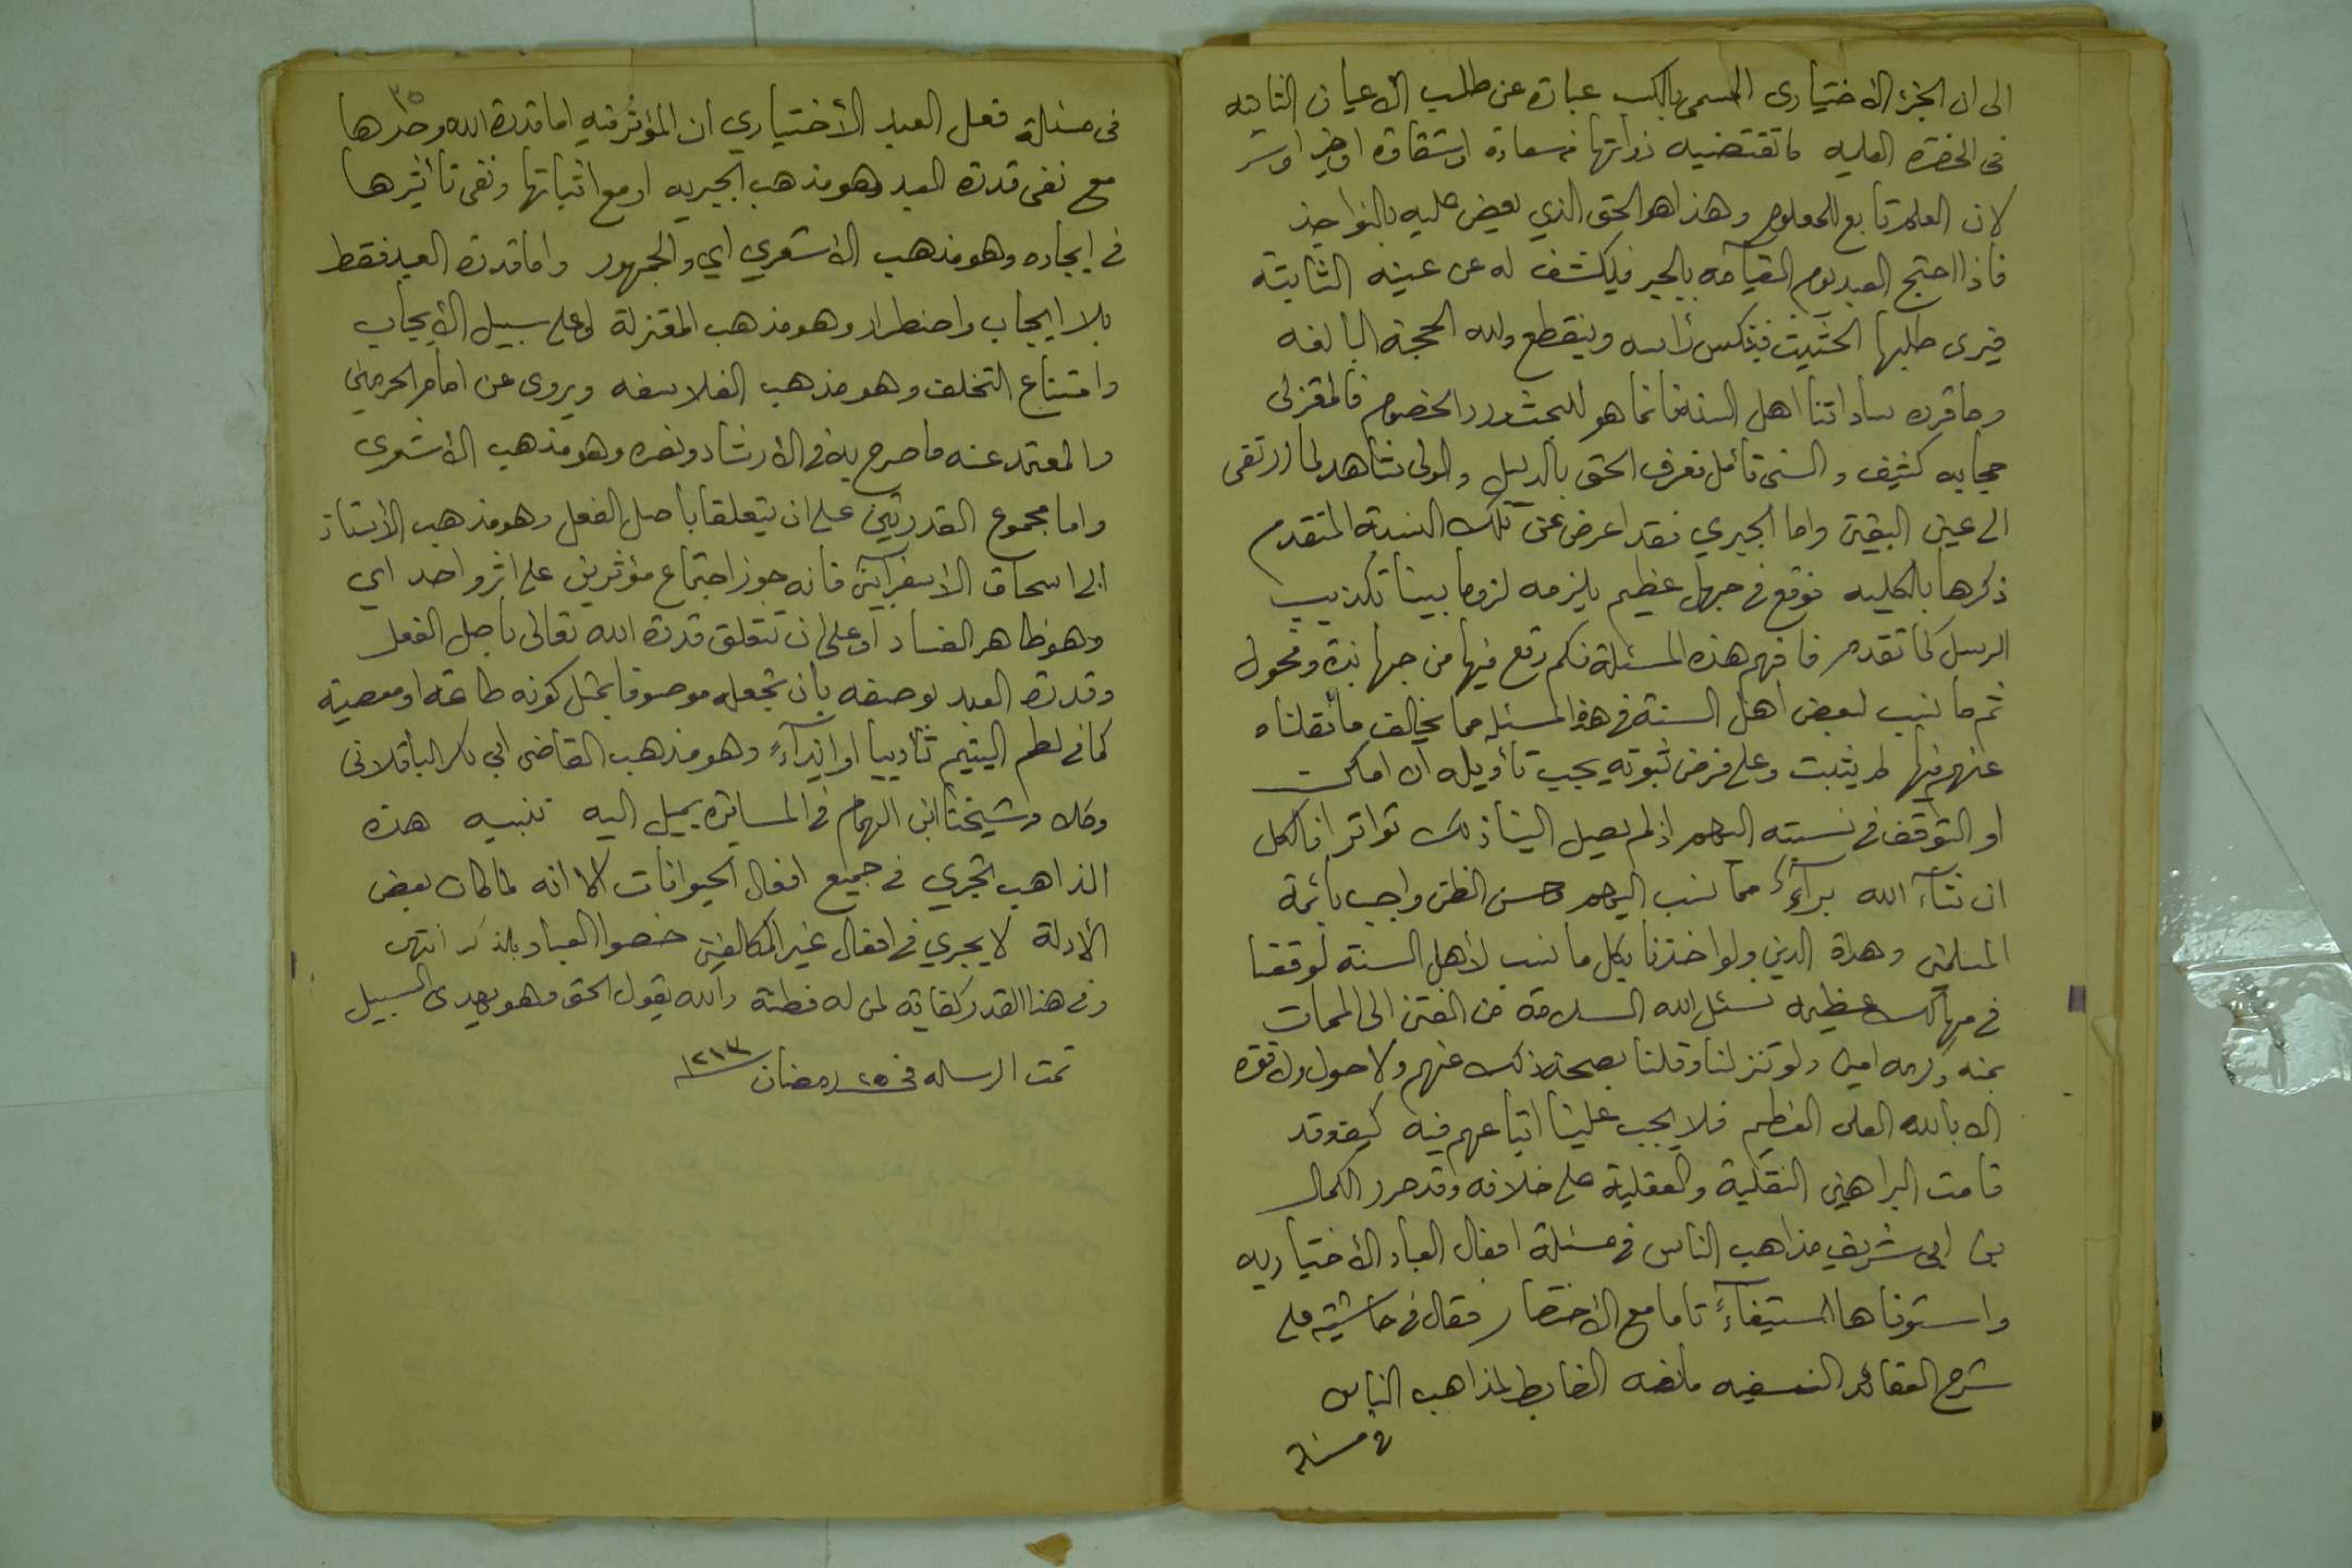 الى ان الجزء الاختيارى المسمى بالكسب عبارة عن طلب الأعيان الثابته
فى الحضرة العلميه ما تقتضيه ذواتها من سعادة او شقاوة او خير او شر
لان العلم تابع للمعلوم وهذا هو الحق الذي يعض عليه بالنواجذ
فاذا احتج العبد يوم القيآمه بالجبر فيكشف له عن عينه الثابتة
فيرى طلبها الحثيث فينكس رأسه وينقطع ولله الحجة البالغه
وما قرره ساداتنا اهل السنة فانما هو للبحث ورد الخصوم فالمعتزلى
حجابه كثيف والسنى تأمل فعرف الحق بالدليل والولى شاهد لما ارتقى
الى عين اليقين واما الجبري فقد اعرض عن تلك النسبة المتقدم
ذكرها بالكليه فوقع فى جهل عظيم يلزمه لزوما بينا تكذيب
الرسل كما تقدم فافهم هذه المسئلة فكم وقع فيها من جهابذة وفحول
ثم ما نسب لبعض اهل السنة فى هذه المسئله مما يخالف ما نقلناه
عنهم فيها لم يثبت وعلى فرض ثبوته يجب تأويله ان امكن
او التوقف فى نسبته اليهم اذ لم يصل الينا ذلك تواترا فالكل
ان شآء الله برآءُ مما نسب اليهم وحسن الظن واجب بأئمة
المسلمين وهداة الدين ولو اخذنا بكل ما نسب لأهل السنة لوقعنا
فى مهالك عظيمه نسئل الله السلامة من الفتن الى الممات
بمنه وكرمه امين ولو تنزلنا وقلنا بصحة ذلك عنهم ولا حول ولا قوة
الا بالله العلى العظيم فلا يجب علينا اتباعهم فيه كيف وقد
قامت البراهين النقلية والعقلية على خلافه وقد حرر الكمال
بن ابى شريف مذاهب الناس فى مسئلة افعال العباد الأختياريه
واستوفاها استيفآءً تاما مع الاختصار فقال فى حاشيته على
شرح العقائد النسفيه ما نصه الضابط لمذاهب الناس
فى مسئلة
٣٥
فى مسئلة فعل العبد الأختياري ان المؤثر فيه اما قدرة الله وحدها
مع نفى قدرة العبد وهو مذهب الجبريه او مع اثباتها ونفى تأثيرها
فى ايجاده وهو مذهب الاشعري اي والجمهور واما قدرة العبد فقط
بلا ايجاب واضطرار وهو مذهب المعتزلة او على سبيل الأيجاب
وامتناع التخلف وهو مذهب الفلاسفه ويروى عن امام الحرمين
والمعتمد عنه ما صرح به فى الأرشاد ونصره وهو مذهب الأشعرى
واما مجموع القدرتين على ان يتعلقا بأصل الفعل وهو مذهب الأستاذ
ابى اسحاق الاسفرآينى فانه جوز اجتماع مؤثرين على اثر واحد اي
وهو ظاهر الفساد او على ان تتعلق قدرة الله تعالى بأصل الفعل
وقدرة العبد بوصفه بأن تجعله موصوفا بمثل كونه طاعة او معصية
كما فى لطم اليتيم تأديبا او ايذآءً وهو مذهب القاضى ابى بكر الباقلانى
وكلام شيخنا ابن الهمام فى المسايرة يميل اليه تنبيه هذه
المذاهب تجري فى جميع افعال الحيوانات الا انه لما كان بعض
الأدلة لا يجري فى افعال غير المكلفين خصوا العباد بالذكر انتهى
وفى هذا القدر كفاية لمن له فطنة والله يقول الحق وهو يهدى السبيل
تمت الرساله فى ٢٥ رمضان ١٢١٣